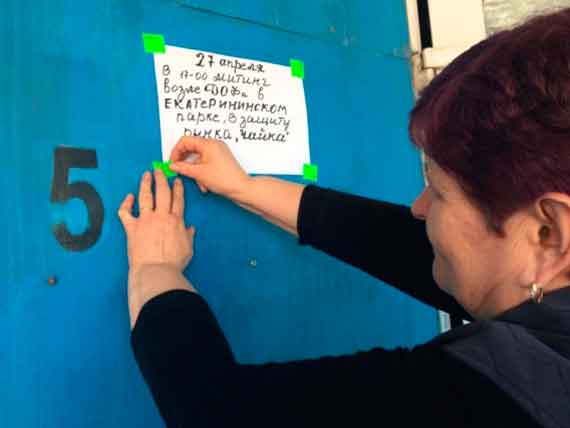 27 апреля
В 17-00 митинг
возле "ДОФ" в
ЕКАТЕРИНИНСКОМ
парке, в защиту
рынка "Чайка"
5